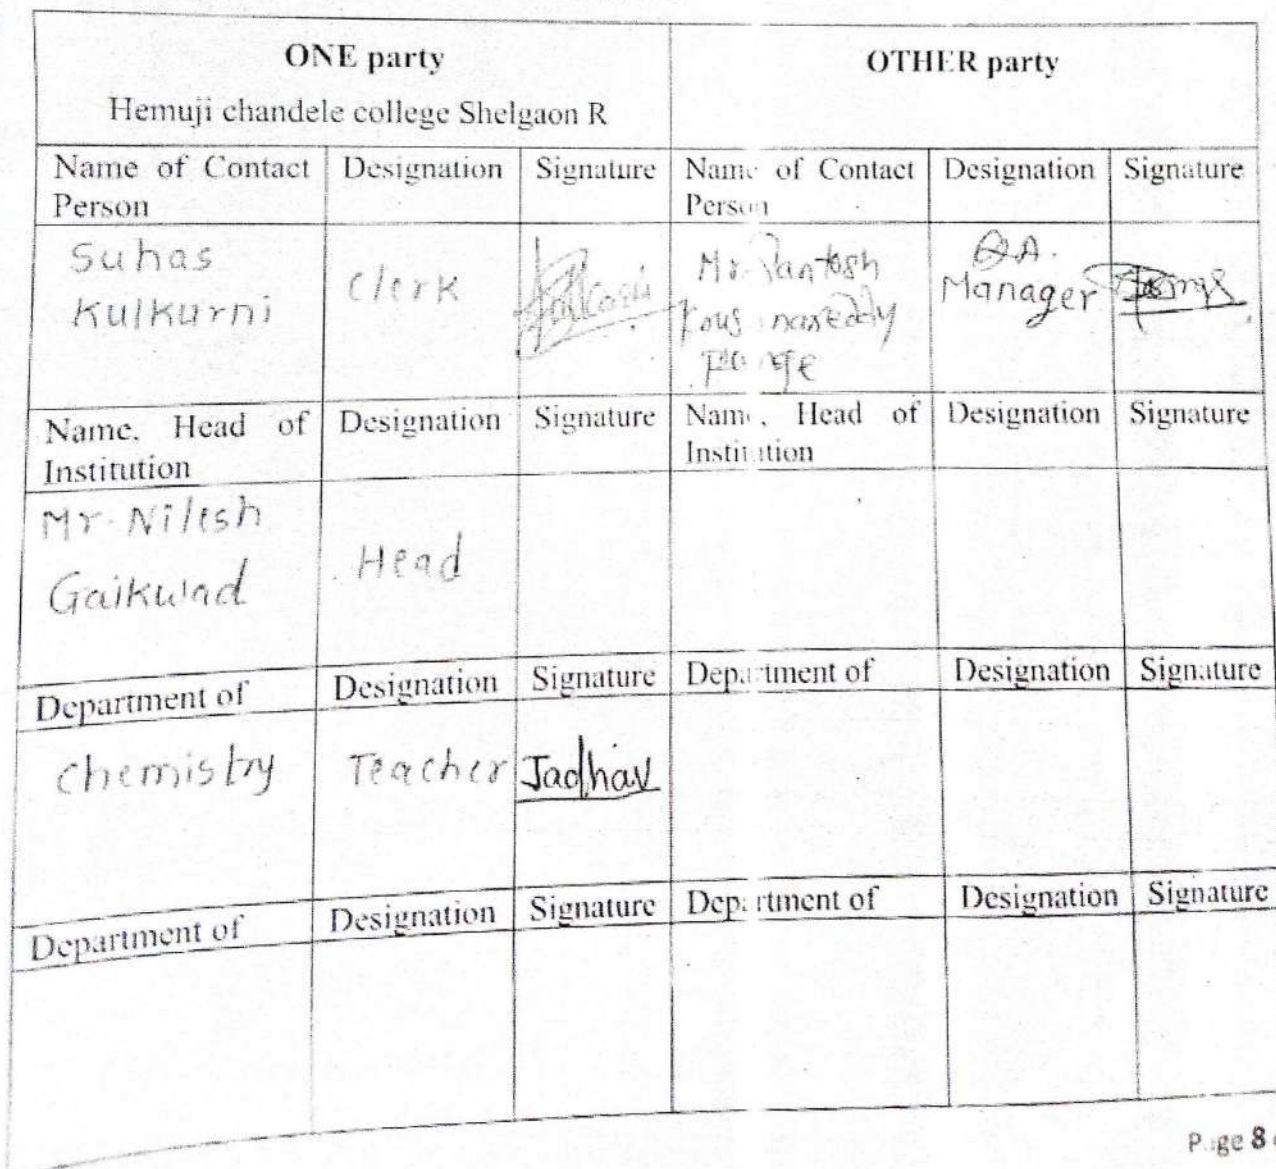 ONE party OTHER party
Hemuji chandele college Shelgaon R
Name of Contact Person Designation Signature Name of Contact Person Designation Signature
Suhas Kulkurni Clerk Mr. Santosh Manager
Name, Head of Institution Designation Signature Name, Head of Institution Designation Signature
Mr. Nilesh
Gaikwad Head
Department of Designation Signature Department of Designation Signature
chemistry Teacher Jadhav
Department of Designation Signature Department of Designation Signature
Page 8